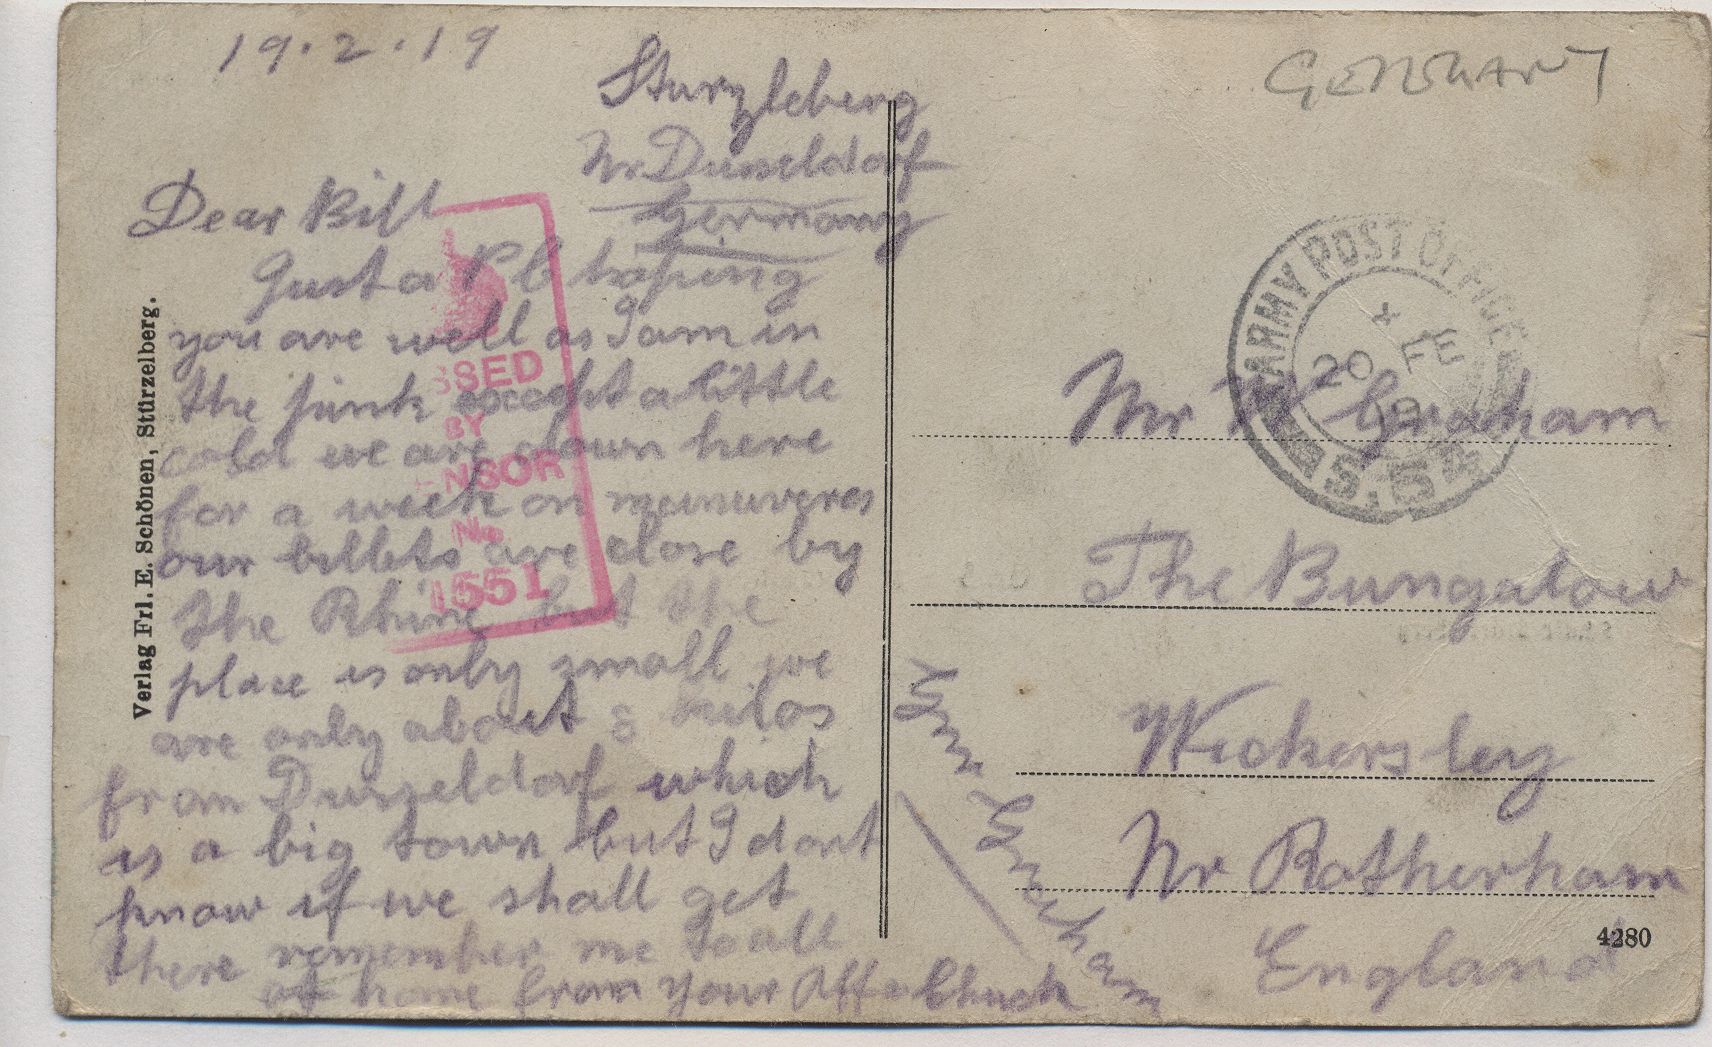 19.2.19
Sturzleberg
Nr Dusseldorf
Germany
Dear Bill
Just a P C hoping
you are well as I am in
the pink except a little
cold we are down here
for a week on manuveres
our billets are close by
the Rhine but the
place is only small we
are only about 8 kilos
from Dusseldorf which
is a big town but I dont
know if we shall get
there remember me to all
at home from your Aff Chuck
SSED
BY
ENSOR
No
1551
Verlag Frl. E. Schönen, Stürzelberg.
GERMANY
ARMY POST OFFICE
20 FE
19
S.54
Mr W Graham
The Bungalow
Wickersley
Nr Rotherham
England
4280